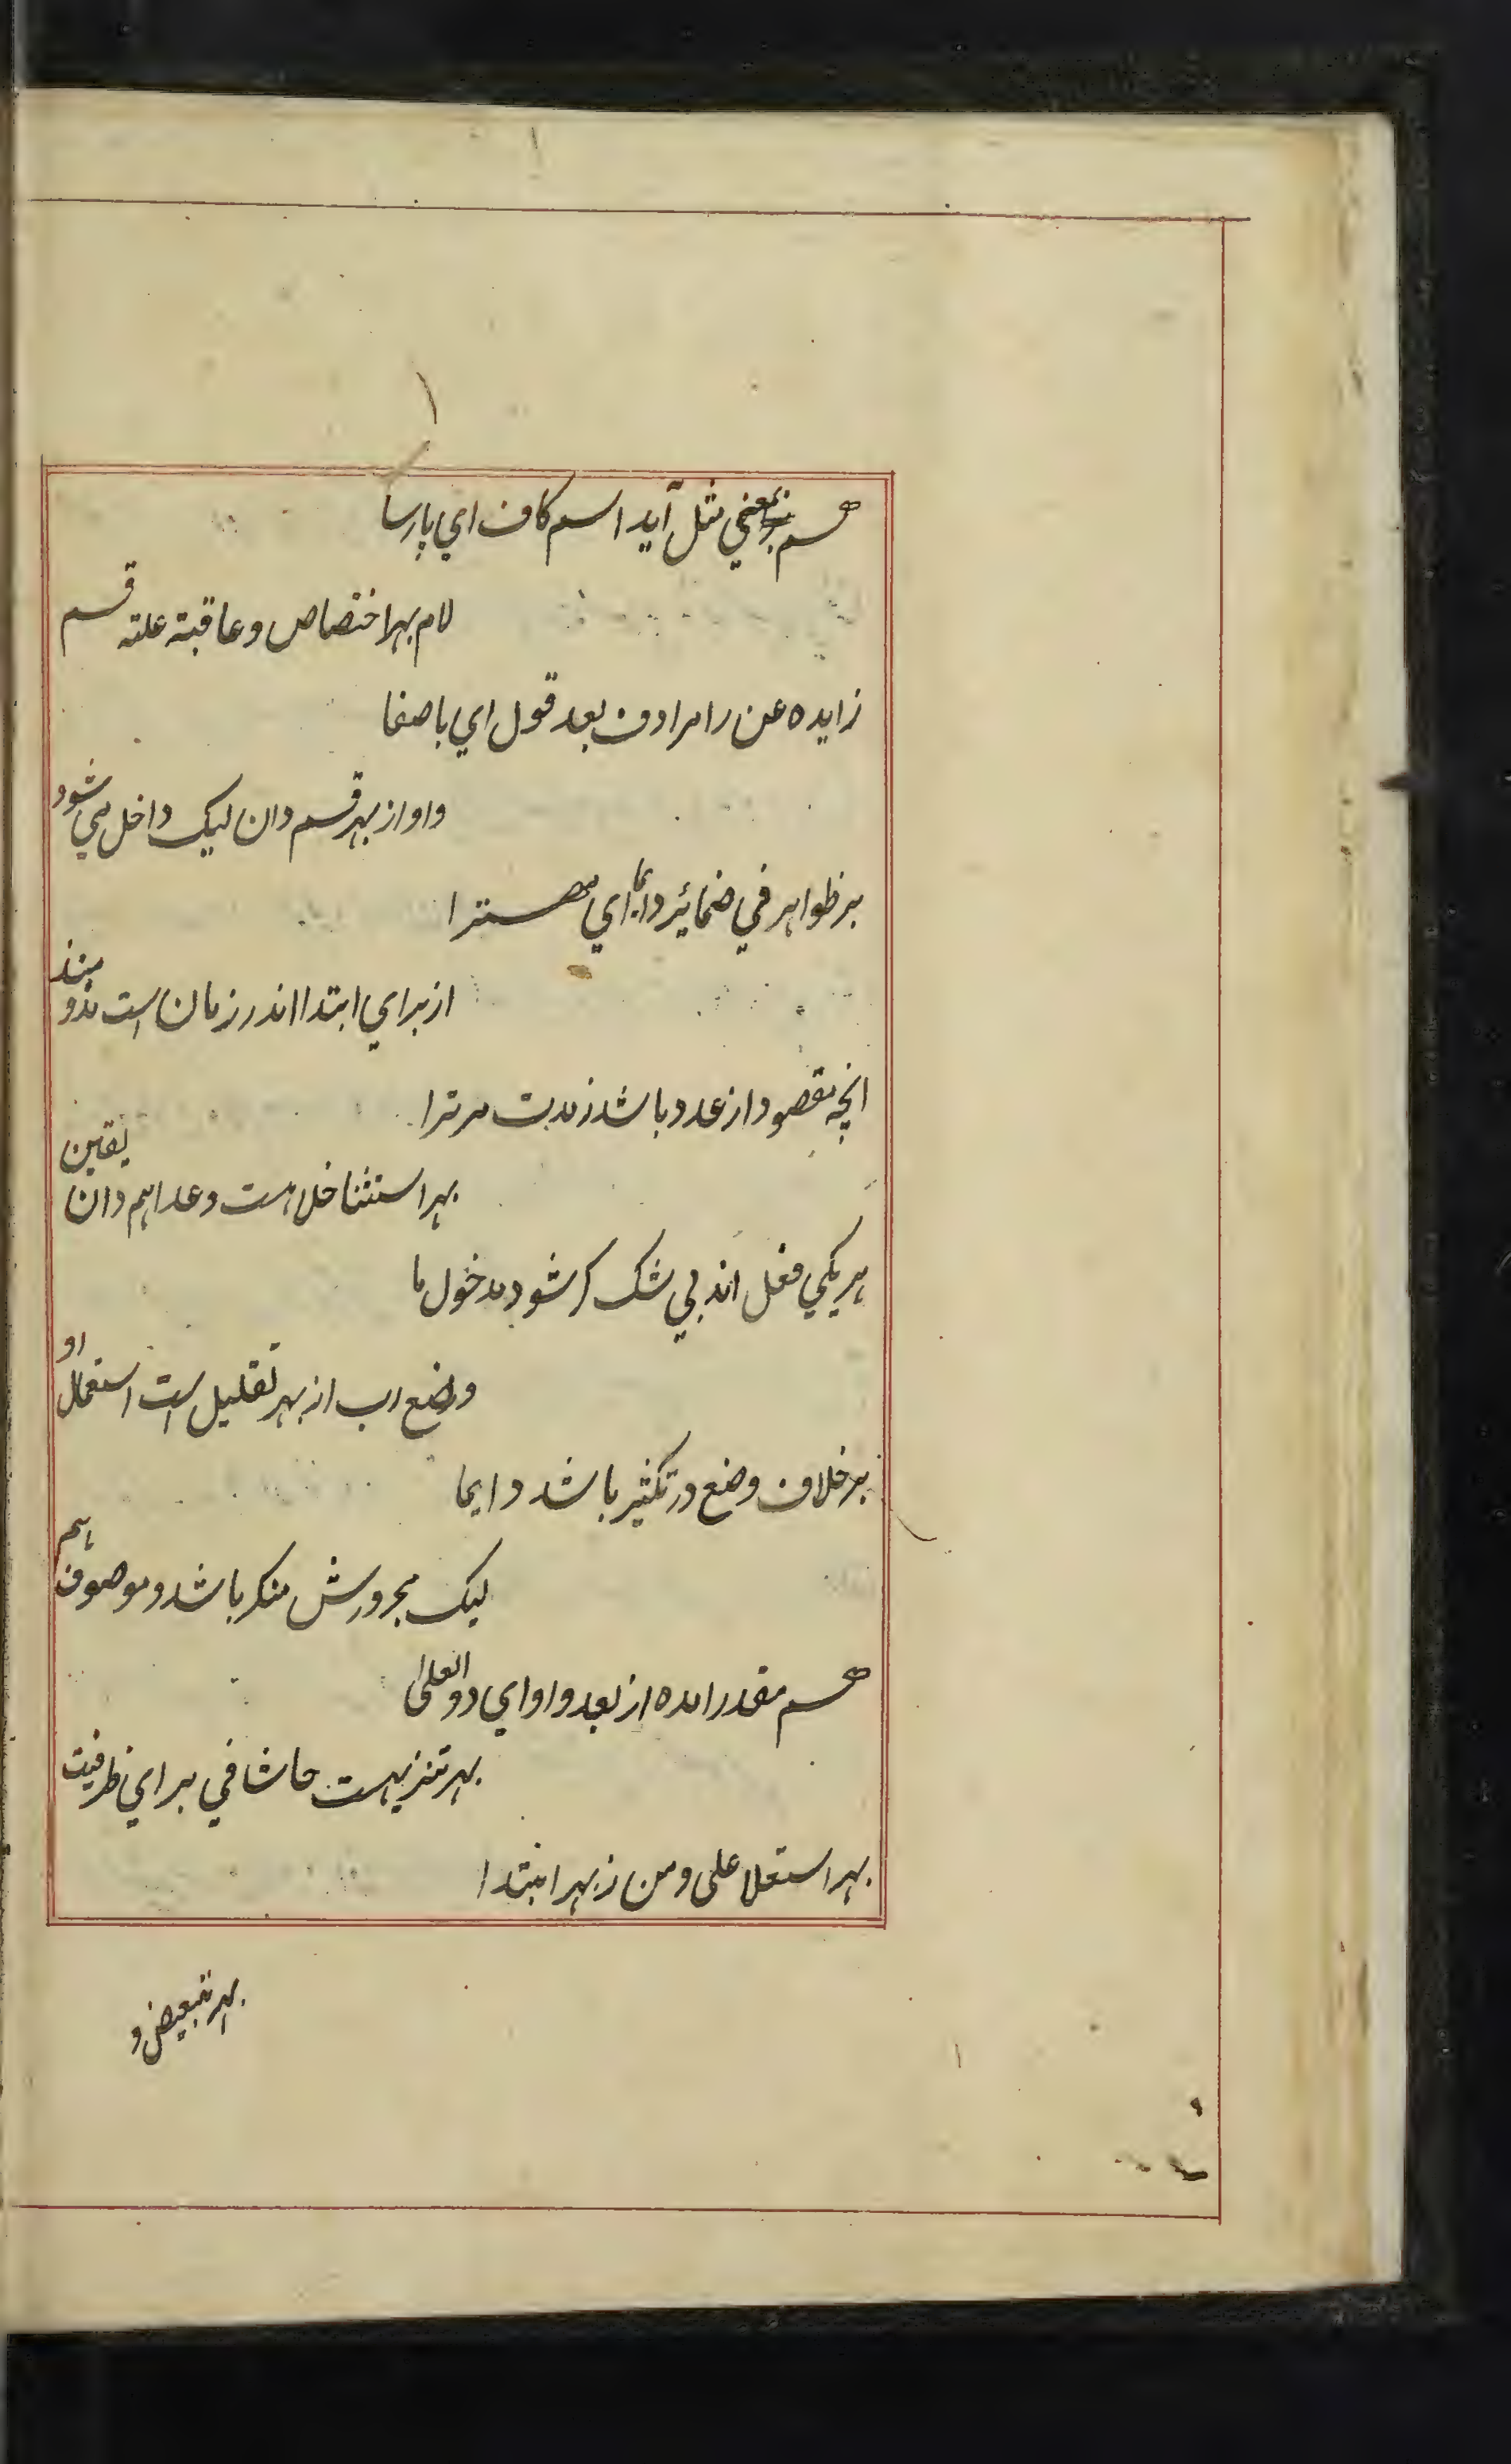 هم بمعني مثل آيد اسم کاف اي پارسا
لام بهر اختصاص و عاقبة علته قسم
زايده عن را مرادف بعد قول اي باصفا
واو از بهر قسم دان ليک داخل مي شود
بر ظواهر في ضمائر دايما اي مهترا
از براي ابتدا اندر زمان است مذ و منذ
انچه مقصود از عدد باشد ز مدت مر ترا
بهر استثنا خلا هست و عدا هم دان يقين
هر يکي فعل اند بي شک گر شود مدخول ما
وضع رب از بهر تقليل است استعمال او
بر خلاف وضع در تکثير باشد دايما
ليک مجرورش منکر باشد و موصوف هم
هم مقدر امده از بعد واو اي ذو العلى
بهر تنزيهست حاشا في براي ظرفيت
بهر استعلا على و من ز بهر ابتدا
بهر تبعيض و